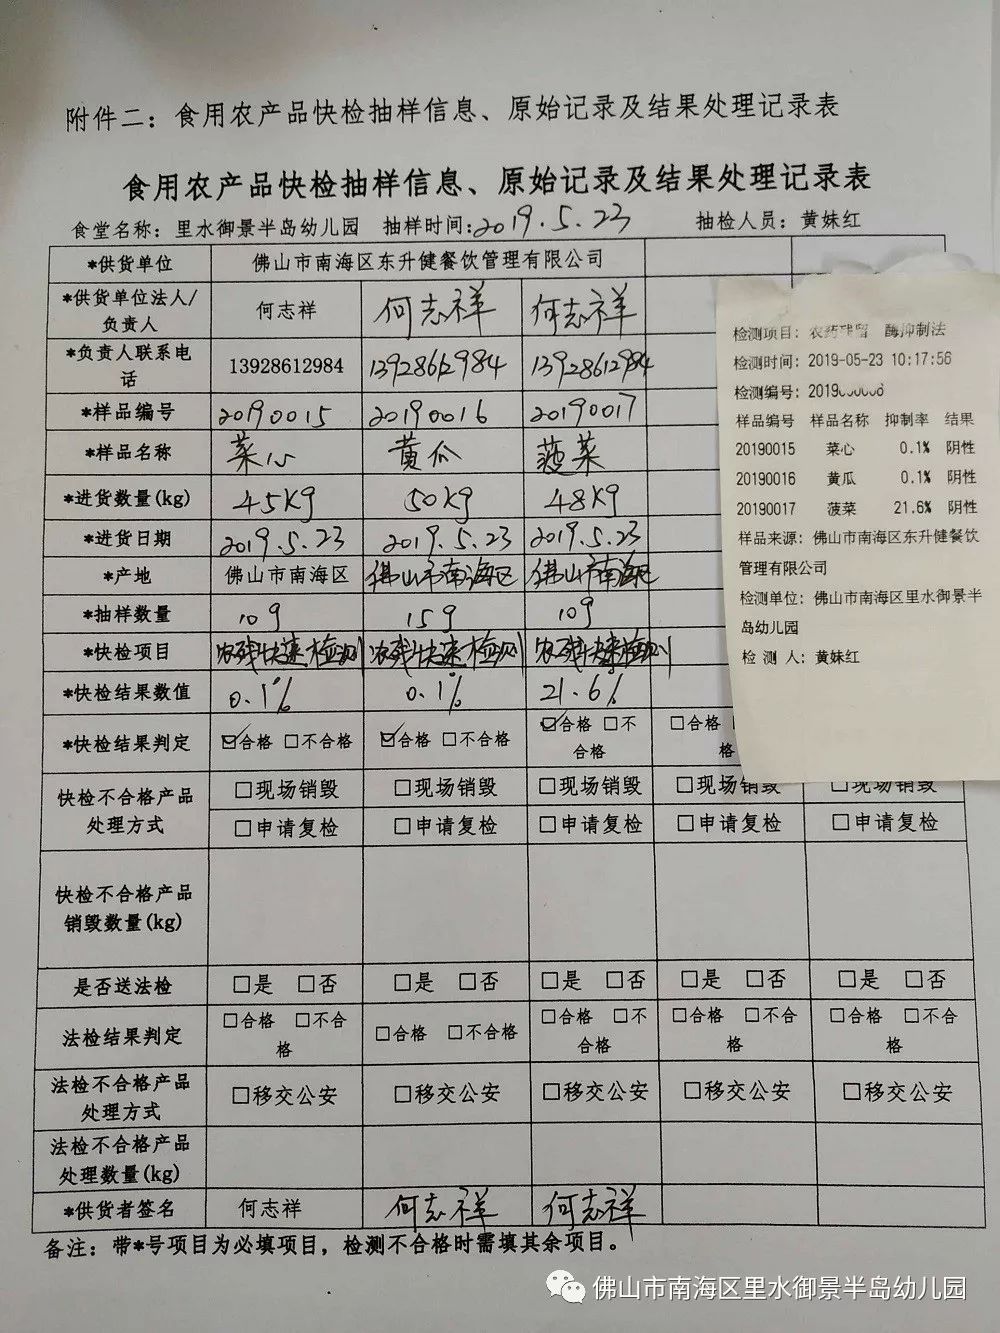 附件二：食用农产品快检抽样信息、原始记录及结果处理记录表
食用农产品快检抽样信息、原始记录及结果处理记录表
食堂名称：里水御景半岛幼儿园 抽样时间:2019.5.23 抽检人员：黄妹红
*供货单位 佛山市南海区东升健餐饮管理有限公司
*供货单位法人/负责人 何志祥 何志祥 何志祥
*负责人联系电话 13928612984 13928612984 13928612984
*样品编号 20190015 20190016 20190017
*样品名称 菜心 黄瓜 菠菜
*进货数量(kg) 45kg 50kg 48kg
*进货日期 2019.5.23 2019.5.23 2019.5.23
*产地 佛山市南海区 佛山市南海区 佛山市南海区
*抽样数量 10g 15g 10g
*快检项目 农残快速检测 农残快速检测 农残快速检测
*快检结果数值 0.1% 0.1% 21.6%
*快检结果判定 ☑合格 □不合格 ☑合格 □不合格 ☑合格 □不合格 □合格 格
快检不合格产品处理方式 □现场销毁 □现场销毁 □现场销毁 □现场销毁 □现场销毁
□申请复检 □申请复检 □申请复检 □申请复检 □申请复检
快检不合格产品销毁数量(kg)
是否送法检 □是 □否 □是 □否 □是 □否 □是 □否 □是 □否
法检结果判定 □合格 □不合格 □合格 □不合格 □合格 □不合格 □合格 □不合格 □合格 □不合格
法检不合格产品处理方式 □移交公安 □移交公安 □移交公安 □移交公安 □移交公安
法检不合格产品处理数量(kg)
*供货者签名 何志祥 何志祥 何志祥
备注：带*号项目为必填项目，检测不合格时需填其余项目。
检测项目：农药残留 酶抑制法
检测时间：2019-05-23 10:17:56
检测编号：2019
样品编号 样品名称 抑制率 结果
20190015 菜心 0.1% 阴性
20190016 黄瓜 0.1% 阴性
20190017 菠菜 21.6% 阴性
样品来源：佛山市南海区东升健餐饮
管理有限公司
检测单位：佛山市南海区里水御景半
岛幼儿园
检 测 人：黄妹红
佛山市南海区里水御景半岛幼儿园